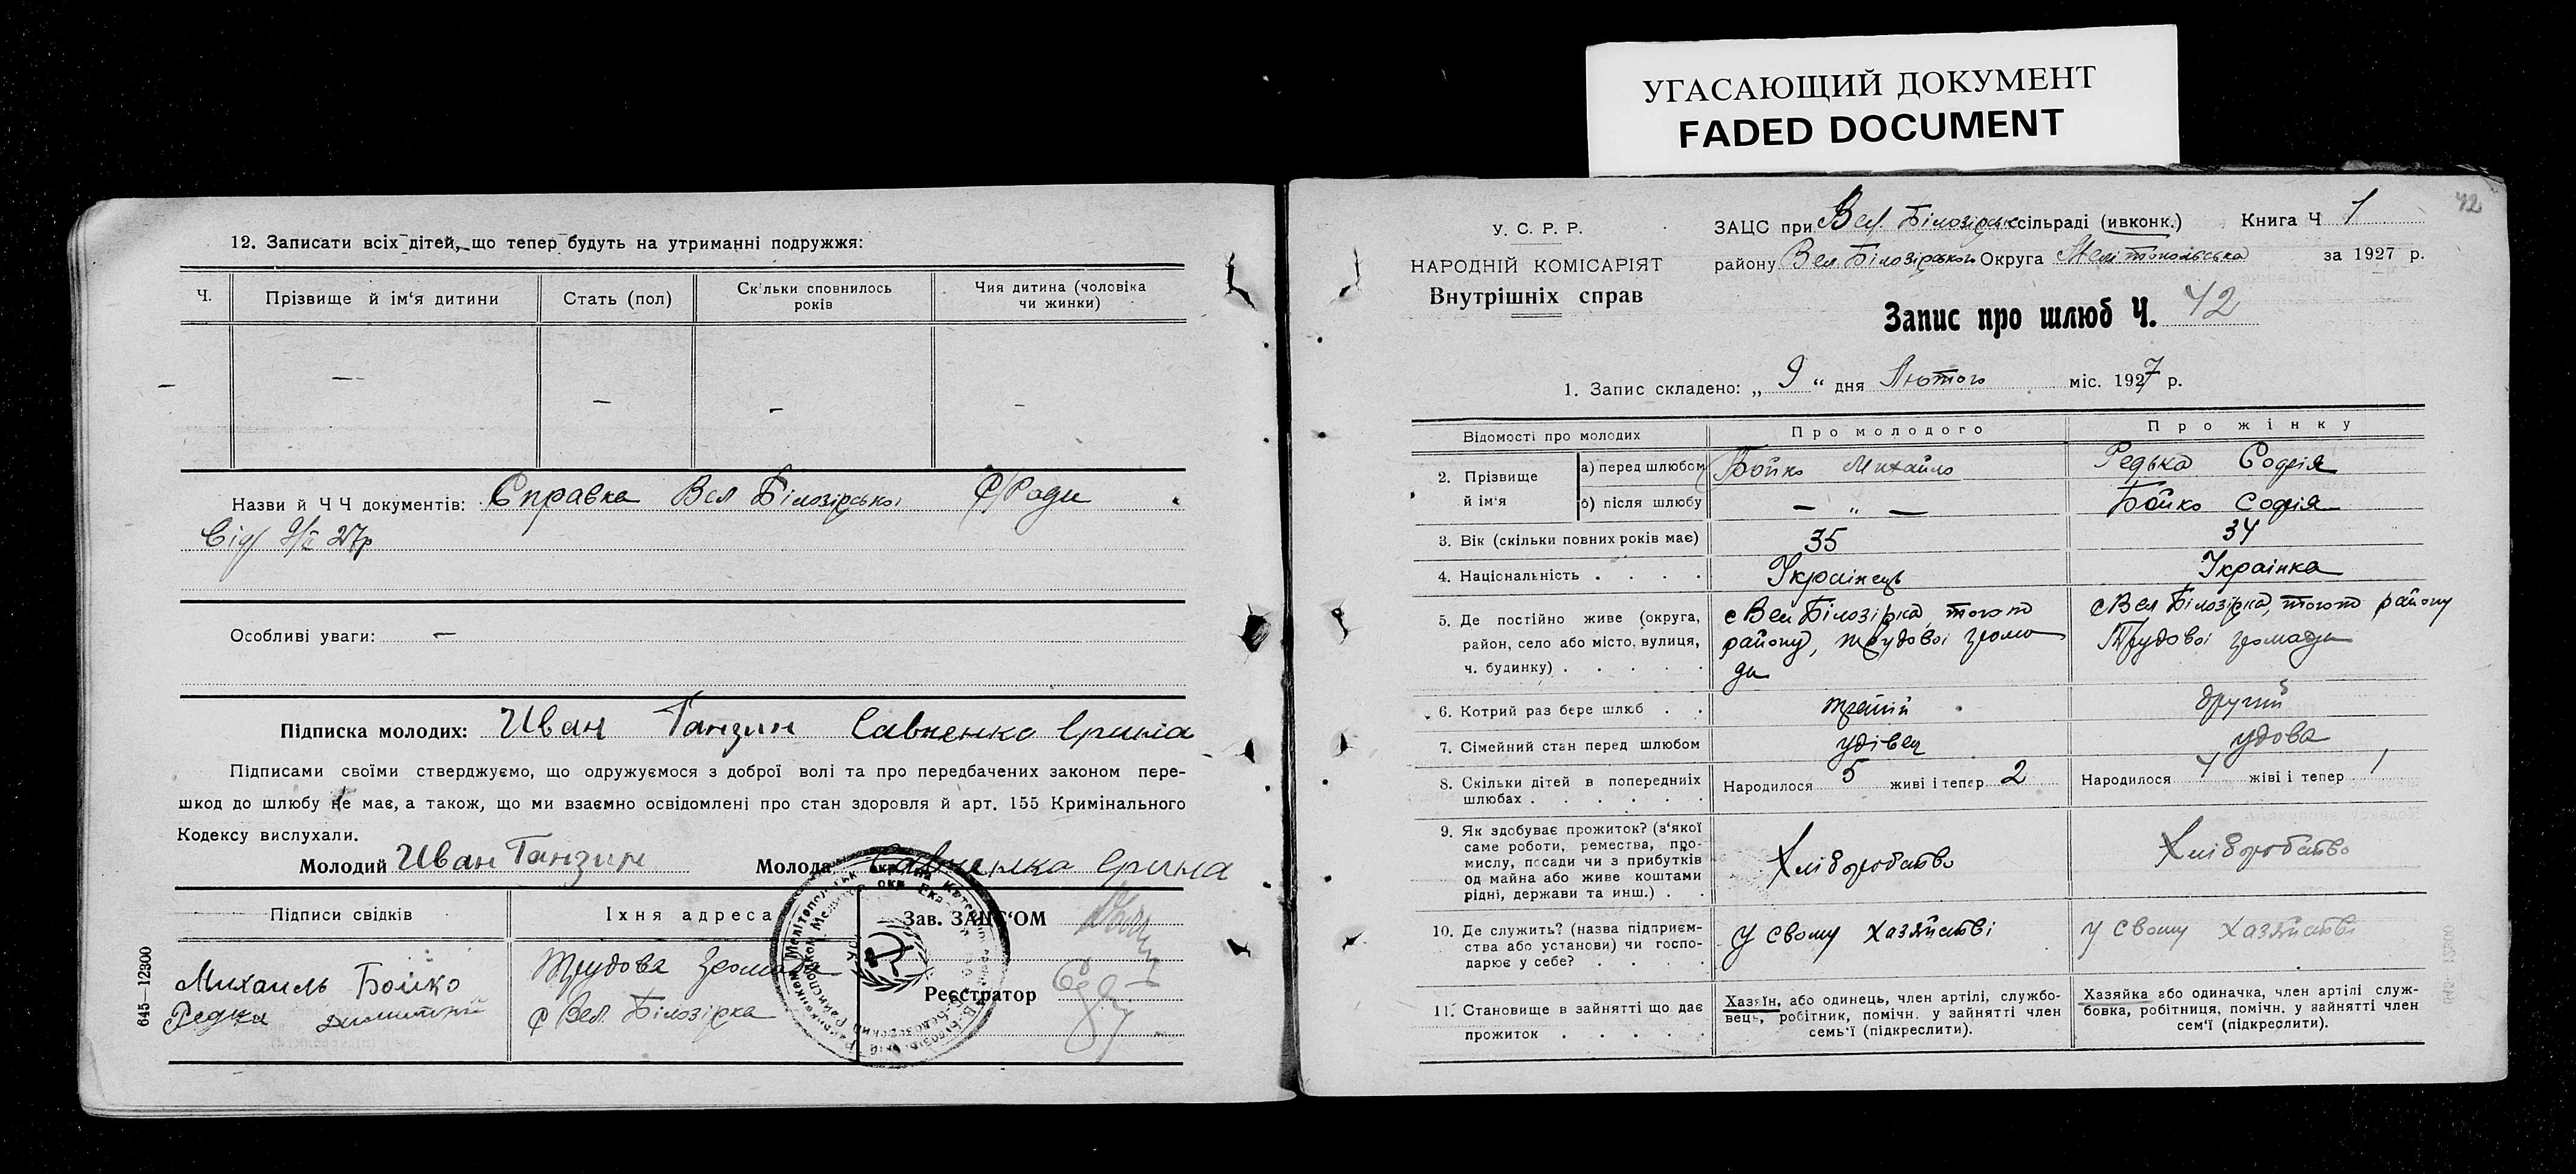 УГАСАЮЩИЙ ДОКУМЕНТ
FADED DOCUMENT
12. Записати всіх дітей, що тепер будуть на утриманні подружжя:
Ч.
Прізвище й ім‘я дитини
Стать (пол)
Скільки сповнилось
років
Чия дитина (чоловіка
чи жинки)
— — — —
Назви й Ч Ч документів: Справка Вел Білозірської С/Ради
Від 9/II 27р
Особливі уваги: —
Підписка молодих: Иван Ганзин Савченко Ірина
Підписами своїми стверджуємо, що одружуємося з доброї волі та про передбачених законом пере-
шкод до шлюбу не має, а також, що ми взаємно освідомлені про стан здоровля й арт. 155 Кримінального
Кодексу вислухали.
Молодий Иван Ганзин Молода Савченко Ірина
Підписи свідків
Їхня адреса
Зав. ЗАЦС‘ОМ
Михаиль Бойко
Редка
Трудова громада
с Вел. Білозірка
Реєстратор
645—12300
42
У. С. Р. Р.
НАРОДНІЙ КОМІСАРІЯТ
Внутрішніх справ
ЗАЦС при Вел. Білозірськ сільраді (ивконк.) Книга Ч 1
району Вел Білозірського Округа Мелітопольська за 1927 р.
Запис про шлюб Ч. 42
1. Запис складено: „ 9 “ дня Лютого міс. 1927 р.
Відомості про молодих
Про молодого
Про жінку
2. Прізвище
й ім‘я
а) перед шлюбом
Бойко Михайло
Редька Софія
б) після шлюбу
— „ —
Бойко Софія
3. Вік (скільки повних років має)
35
34
4. Національність . . . .
Українець
Українка
5. Де постійно живе (округа,
район, село або місто, вулиця,
ч. будинку) . . . . .
с Вел Білозірка, того ж
району, трудової грома
ди
с Вел Білозірка, того ж району
Трудової громади
6. Котрий раз бере шлюб . .
третій
другий
7. Сімейний стан перед шлюбом
удівец
удова
8. Скільки дітей в попередниіх
шлюбах . . . . . .
Народилося 5 живі і тепер 2
Народилося 4 жіві і тепер 1
9. Як здобуває прожиток? (з‘якої
саме роботи, ремества, про-
мислу, посади чи з прибутків
од майна або живе коштами
рідні, держави та инш.) . .
Хліборобство
Хліборобство
10. Де служить? (назва підприєм-
ства або установи) чи госпо-
дарює у себе? . . . .
у свому хазяйстві
у свому хазяйстві
11. Становище в зайнятті що дає
прожиток . . . . .
Хазяїн, або одинець, член артілі, службо-
вець, робітник, помічн. у зайнятті член
семь‘ї (підкреслити).
Хазяйка або одиначка, член артілі служ-
бовка, робітниця, помічн. у зайнятті член
сем‘ї (підкреслити).